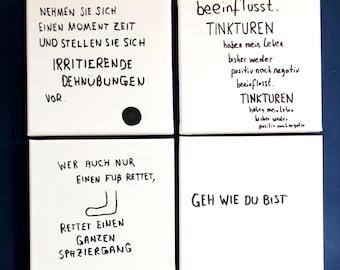 NEHMEN SIE SICH
EINEN MOMENT ZEIT
UND STELLEN SIE SICH
IRRITIERENDE
DEHNÜBUNGEN
VOR.
beeinflusst.
TINKTUREN
haben mein Leben
bisher weder
positiv noch negativ
beeinflusst.
TINKTUREN
haben mein Leben
bisher weder
positiv noch negativ
WER AUCH NUR
EINEN FUẞ RETTET,
RETTET EINEN
GANZEN
SPAZIERGANG
GEH WIE DU BIST